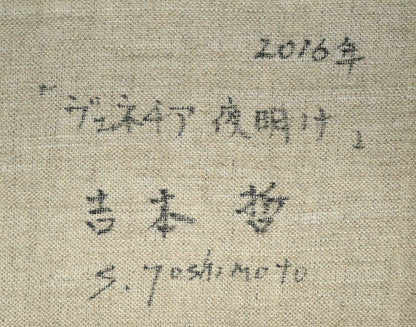 2016年
「ヴェネチア 夜明け」
吉本 哲
S. Yoshimoto